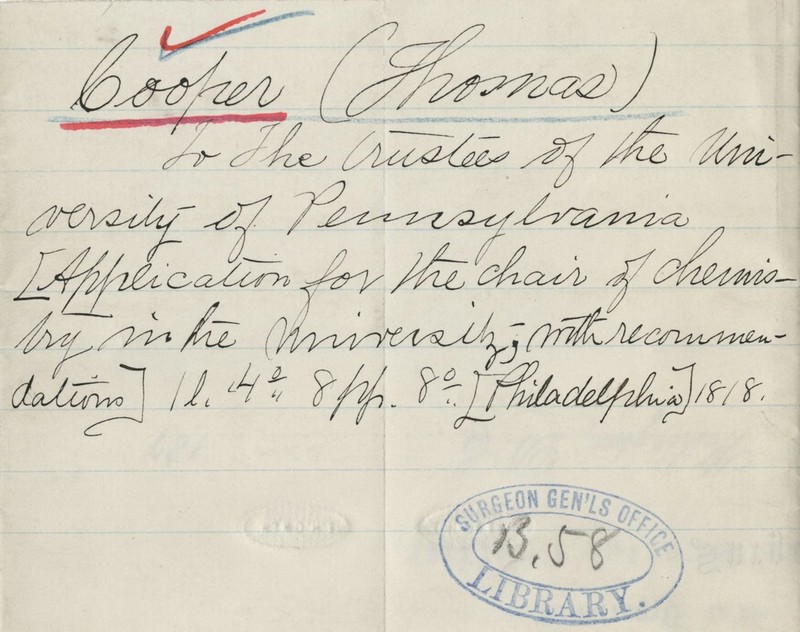 Cooper (Thomas)
To The trustees of the Uni-
versity of Pennsylvania
[Application for the chair of chemis-
try in the University; with recommen-
dations] 1 l. 4º 8 pp. 8º. [Philadelphia] 1818.
SURGEON GEN'LS OFFICE
B. 58
LIBRARY.